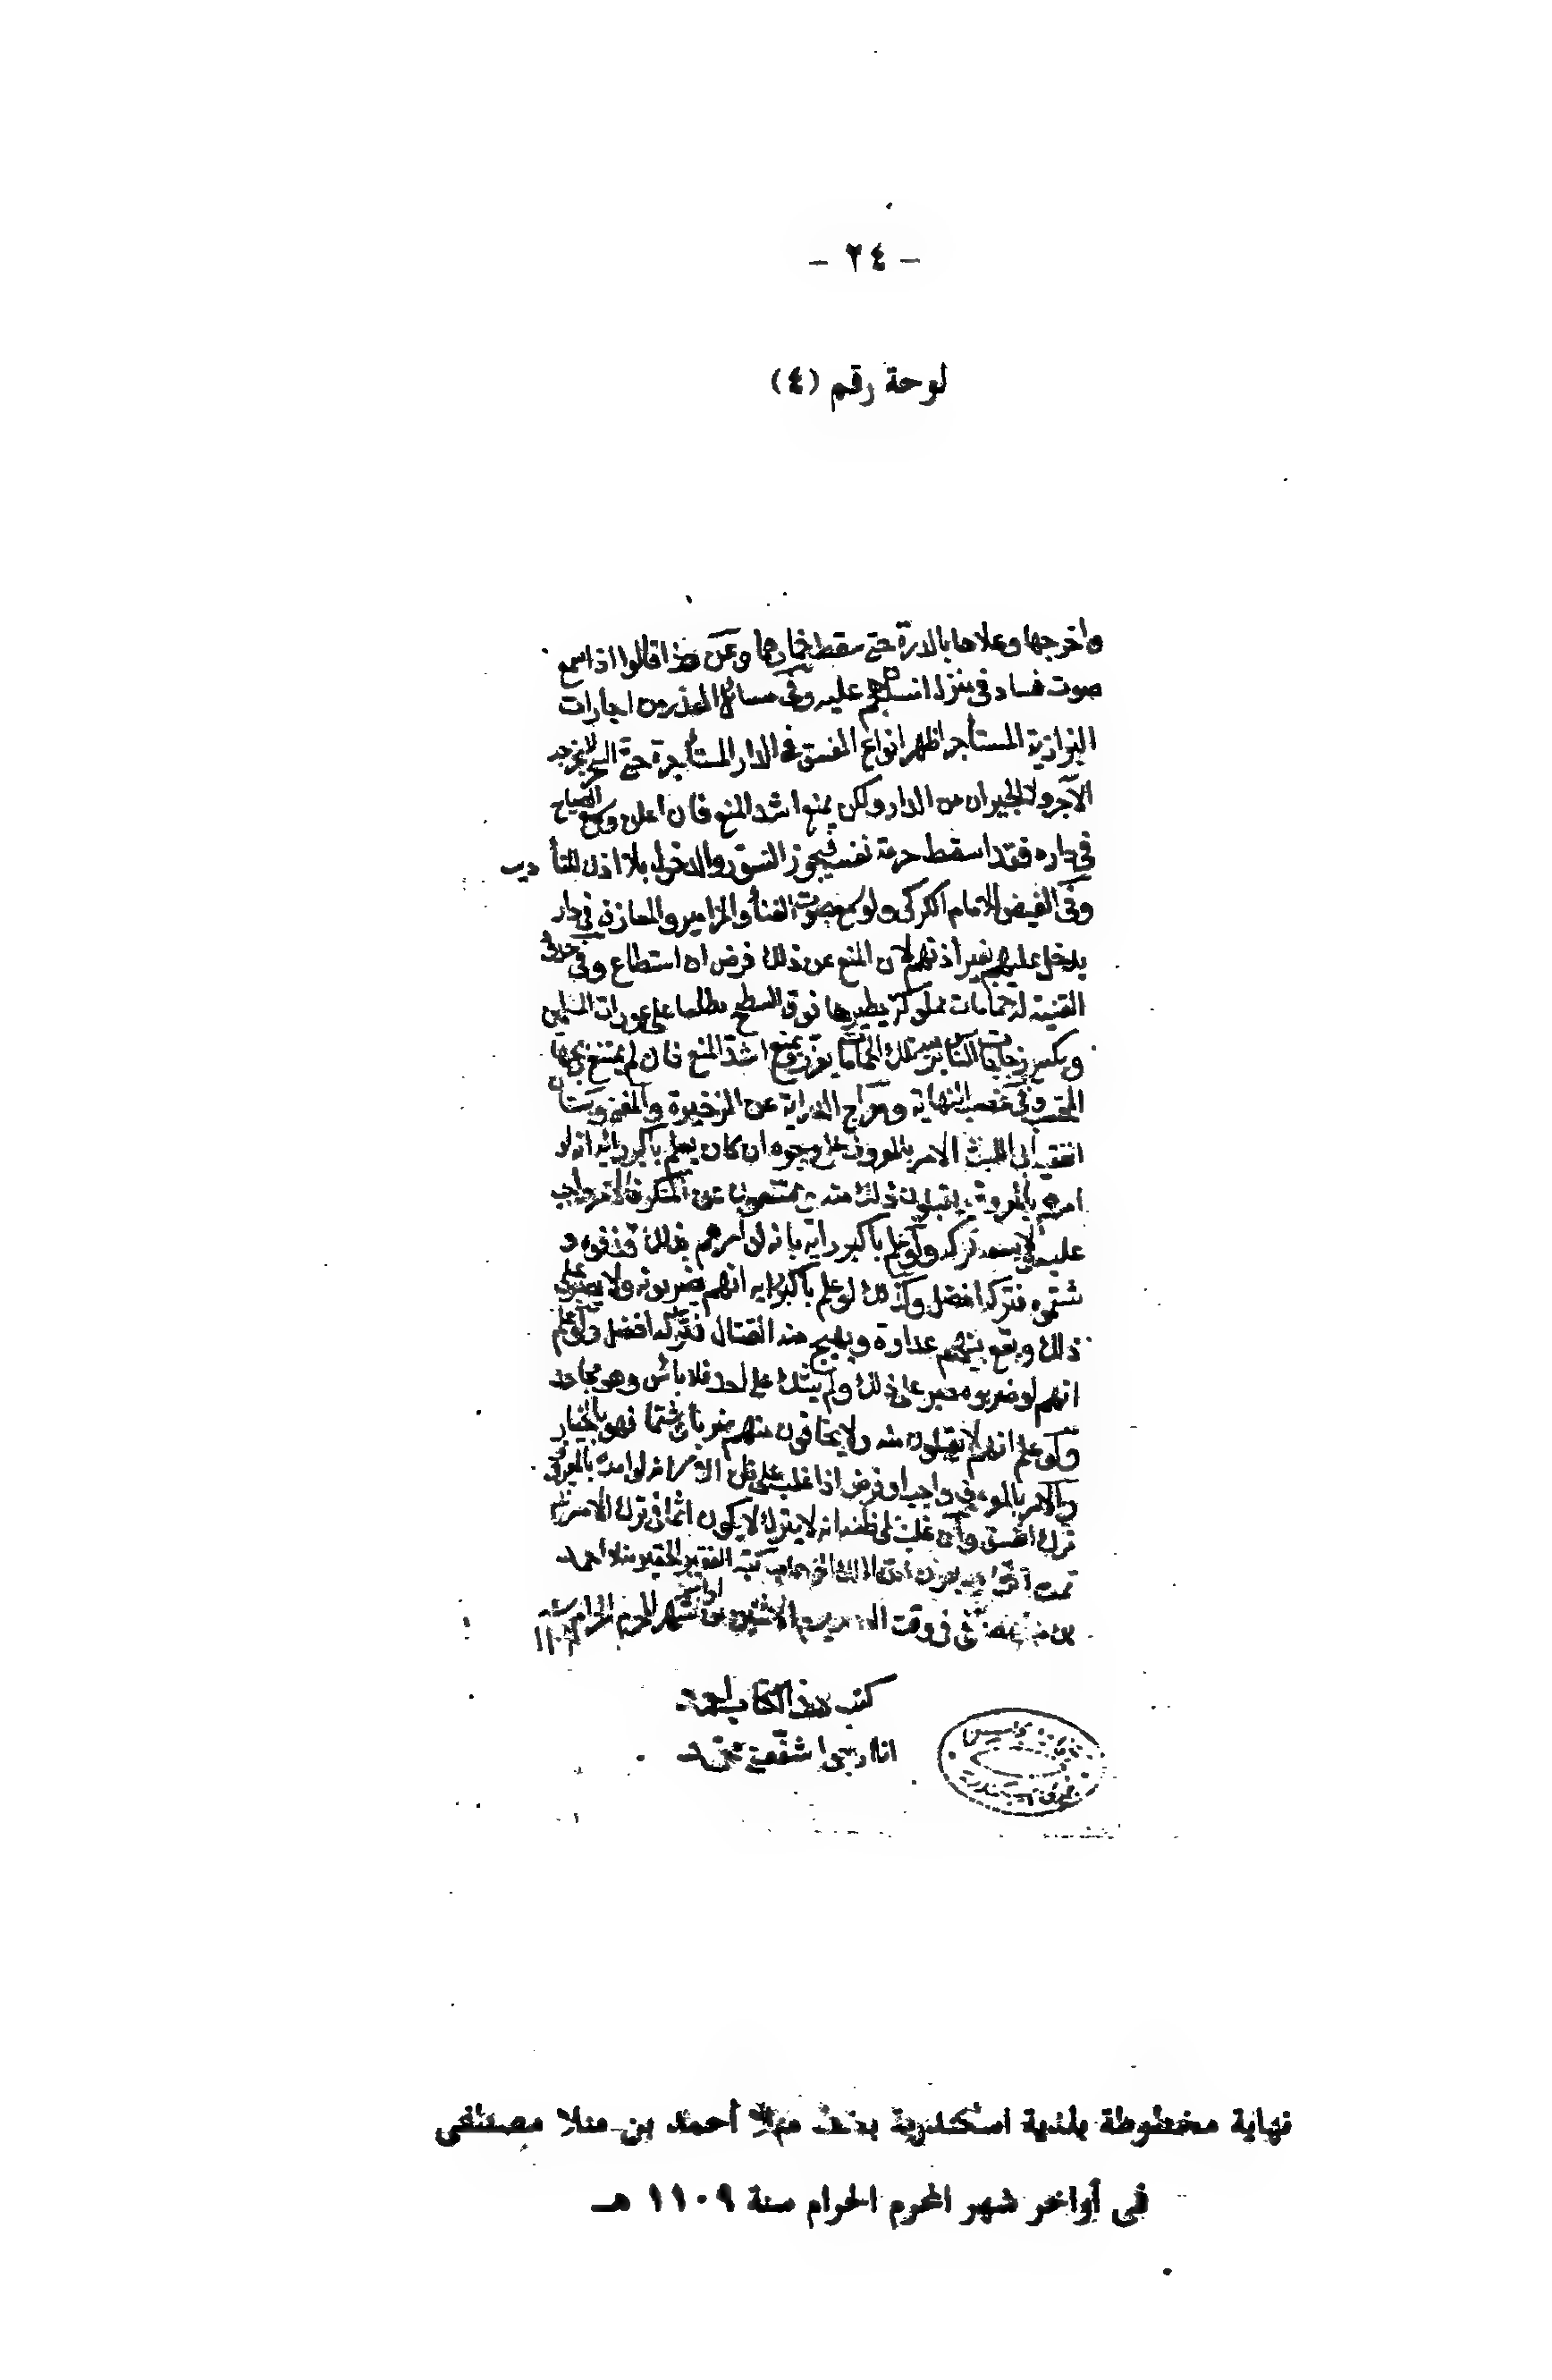 - ٢٤ -
لوحة رقم (٤)
واخرجها وعلاها بالدرة حتى سقط خمارها وعن هذا قالوا اذا سمع
صوت فساد في منزل انسان هجم عليه وفى مسائل العذر من اجارات
البزازية المستأجر اظهر انواع الفسق فى الدار المستأجرة حتى السحر لا يخرجه
الآجر ولا الجيران من الدار ولكن يمنع اشد المنع فان اعلن وسمع الصياح
فى داره فقد اسقط حرمة نفسه فيجوز التسور والدخول بلا اذن للتأديب
وفى الفيض للامام الكركى ولو سمع صوت الغناء والمزامير والمعازف فى دار
يدخل عليهم بغير اذنهم لان المنع عن ذلك فرض ان استطاع وفى
القنية له حمامات مملوكة يطيرها فوق السطح مطلعا على عورات المسلمين
ويكسر زجاجات الناس برميه تلك الحمامات يعزر ويمنع اشد المنع فان لم يمتنع ذبحها
المحتسب وفى النهاية ومعراج الدراية عن الذخيرة والمغنى وبستان
الفقيه ابى الليث الامر بالمعروف على وجوه ان كان يعلم باكبر رأيه انه لو
امرهم بالمعروف يقبلون ذلك منه ويمتنعون عن المنكر فالامر واجب
عليه لا يسعه تركه ولو علم باكبر رايه بانه لو امرهم بذلك قذفوه و
شتموه فتركه افضل وكذلك لو علم باكبر رايه انهم يضربونه ولا يصبر على
ذلك ويقع بينهم عداوة ويهيج منه القتال فتركه افضل ولو علم
انهم لو ضربوه صبر على ذلك ولم يشك على احد فلا بأس وهو مجاهد
ولو علم انهم لا يقبلون منه ولا يخاف منهم ضربا ولا شتما فهو بالخيار
والامر بالمعروف واجب او فرض اذا غلب على ظن الآمر انه لو امره بالمعروف
ترك الفسق وان غلب على ظنه انه لا يترك لا يكون آثما فى ترك الامر
تمت كتبه الفقير الحقير منلا احمد
بن منلا مصطفى فى وقت الاثنين من اواخر شهر المحرم الحرام سنة ١١٠٩
كتب هذا الكتاب احمد
نهاية مخطوطة بلدية اسكندرية بخط منلا أحمد بن منلا مصطفى
فى أواخر شهر المحرم الحرام سنة ١١٠٩ هـ